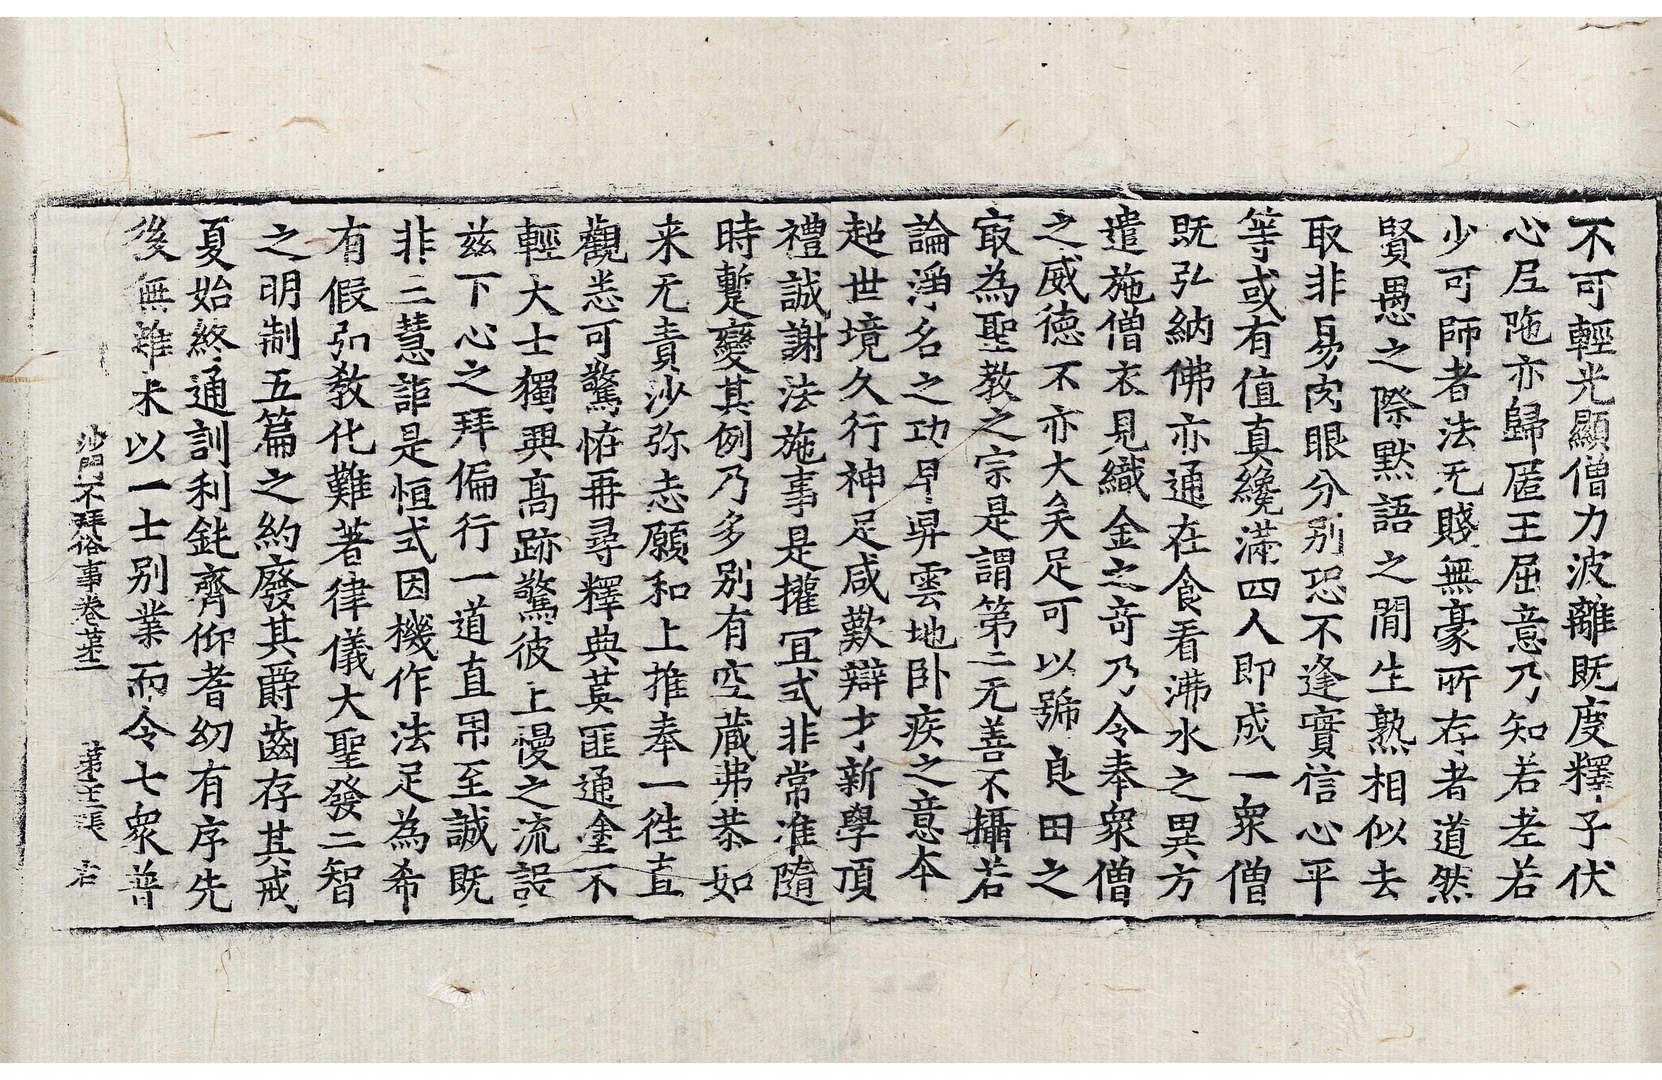 不可輕光顯僧力波離既度釋子伏
心尼陁亦歸匿王屈意乃知若老若
少可師者法无賤無豪所存者道然
賢愚之際默語之間生熟相似去
取非易肉眼分別恐不逢實信心平
等或有值真纔滿四人即成一衆僧
既弘納佛亦通在食看沸水之異方
遣施僧衣見織金之奇乃令奉衆僧
之威德不亦大矣足可以號良田之
㝡為聖教之宗是謂第二无善不攝若
論淨名之功早昇雲地卧疾之意本
超世境久行神足咸歎辯才新學頂
禮誠謝法施事是攉冝式非常准隨
時蹔變其例乃多別有空藏弗恭如
来无責沙弥志願和上推奉一徃直
觀悉可驚恠再尋釋典莫匪通塗不
輕大士獨興髙跡驚彼上慢之流設
兹下心之拜偏行一道直用至誠既
非三慧詎是恒式因機作法足為希
有假弘教化難著律儀大聖發二智
之明制五篇之約廢其爵齒存其戒
夏始終通訓利鈍齊仰耆幼有序先
後無雜未以一士別業而令七衆普
沙門不拜俗事卷苐二　苐王張　君